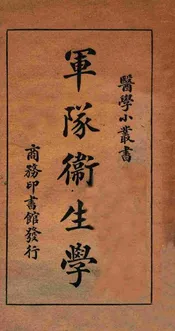 醫學小叢書
軍隊衞生學
商務印書館發行